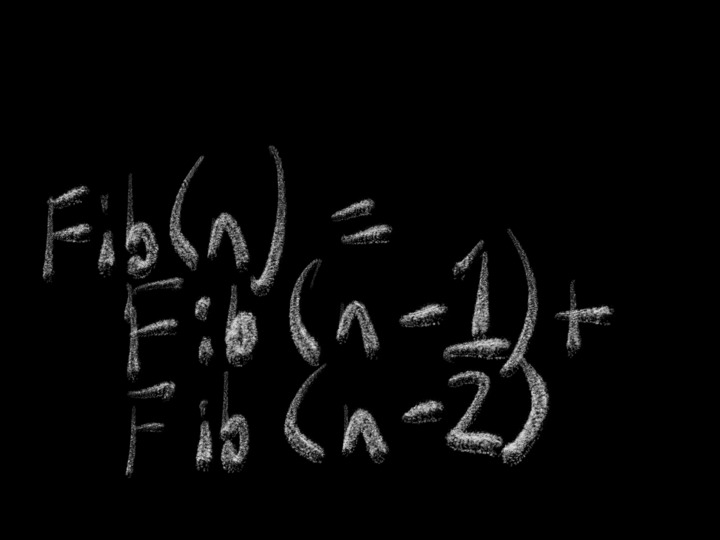 Fib(n) =
Fib(n-1) +
Fib(n-2)